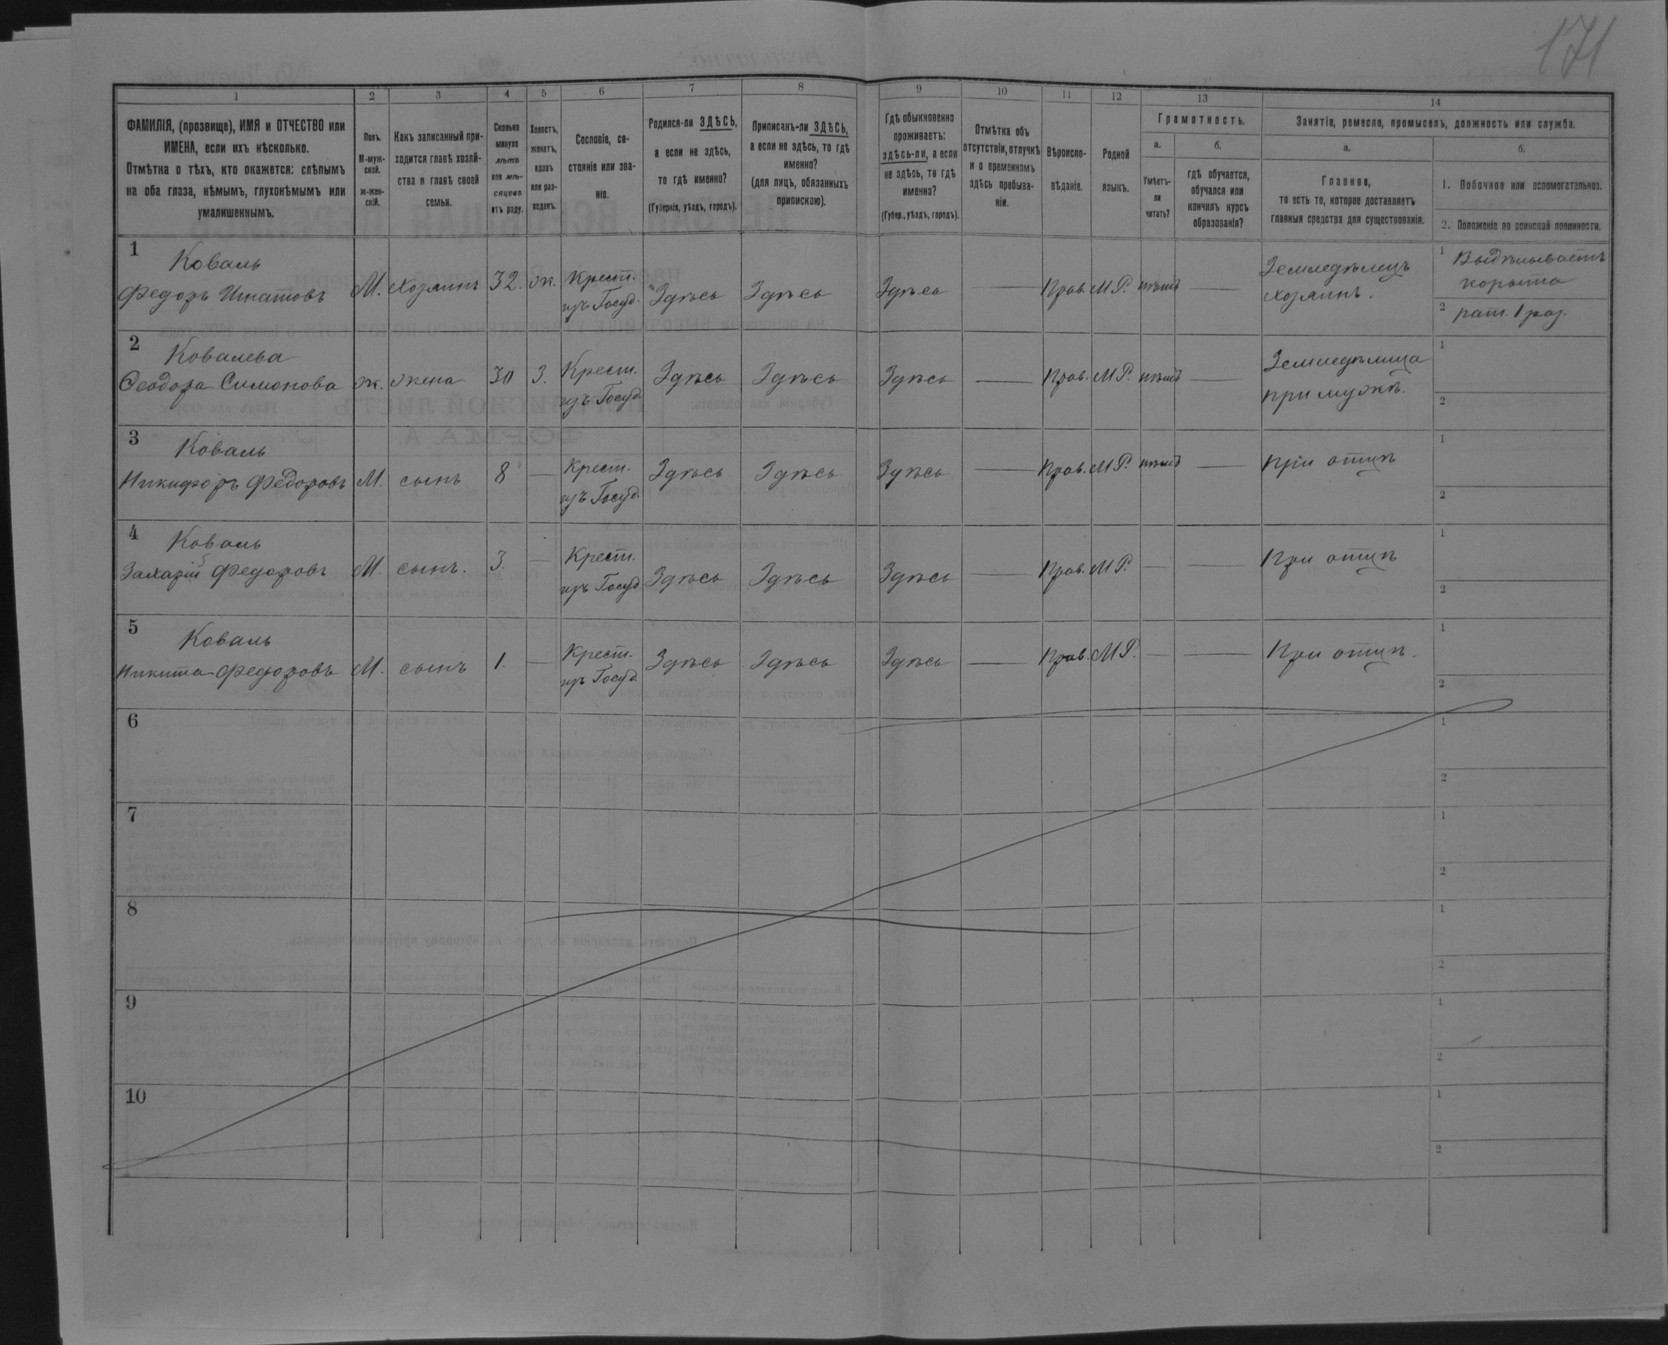 171
1
2
3
4
5
6
7
8
9
10
11
12
13
14
ФАМИЛІЯ, (прозвище), ИМЯ и ОТЧЕСТВО или
ИМЕНА, если ихъ нѣсколько.
Отмѣтка о тѣхъ, кто окажется: слѣпымъ
на оба глаза, нѣмымъ, глухонѣмымъ или
умалишеннымъ.
Полъ.
М-муж-
ской.
Ж-жен-
скій.
Какъ записанный при-
ходится главѣ хозяй-
ства и главѣ своей
семьи.
Сколько
минуло
лѣтъ
или мѣ-
сяцевъ
отъ роду.
Холостъ,
женатъ,
вдовъ
или раз-
веденъ.
Сословіе, со-
стояніе или зва-
ніе.
Родился-ли ЗДѢСЬ,
а если не здѣсь,
то гдѣ именно?
(Губернія, уѣздъ, городъ).
Приписанъ-ли ЗДѢСЬ,
а если не здѣсь, то гдѣ
именно?
(для лицъ, обязанныхъ
припискою).
Гдѣ обыкновенно
проживаетъ:
здѣсь-ли, а если
не здѣсь, то гдѣ
именно?
(Губер., уѣздъ, городъ).
Отмѣтка объ
отсутствіи, отлучкѣ
и о временномъ
здѣсь пребыва-
ніи.
Вѣроиспо-
вѣданіе.
Родной
языкъ.
Грамотность.
а.
Умѣетъ-
ли
читать?
б.
гдѣ обучается,
обучался или
кончилъ курсъ
образованія?
Занятіе, ремесло, промыселъ, должность или служба.
а.
Главное,
то есть то, которое доставляетъ
главныя средства для существованія.
б.
1. Побочное или вспомогательное.
2. Положеніе по воинской повинности.
1
Коваль
Федоръ Игнатовъ
М.
хозяинъ
32.
ж.
Крест.
изъ Госуд.
Здѣсь
Здѣсь
Здѣсь
Прав.
М.Р.
нѣтъ
Земледѣлецъ
хозяинъ.
1 Выдѣлываетъ
корыта
2 рат. 1 раз.
2
Ковалева
Феодора Симонова
ж.
жена
30
З.
Крест.
изъ Госуд.
Здѣсь
Здѣсь
Здѣсь
Прав.
М.Р.
нѣтъ
Земледѣлица
при мужѣ.
1
2
3
Коваль
Никифоръ Федоровъ
М.
сынъ
8
Крест.
изъ Госуд.
Здѣсь
Здѣсь
Здѣсь
Прав.
М.Р.
нѣтъ
При отцѣ
1
2
4
Коваль
Захарій Федоровъ
М.
сынъ.
3.
Крест.
изъ Госуд.
Здѣсь
Здѣсь
Здѣсь
Прав.
М.Р.
При отцѣ
1
2
5
Коваль
Никита Федоровъ
М.
сынъ
1.
Крест.
изъ Госуд.
Здѣсь
Здѣсь
Здѣсь
Прав.
М.Р.
При отцѣ.
1
2
6
1
2
7
1
2
8
1
2
9
1
2
10
1
2